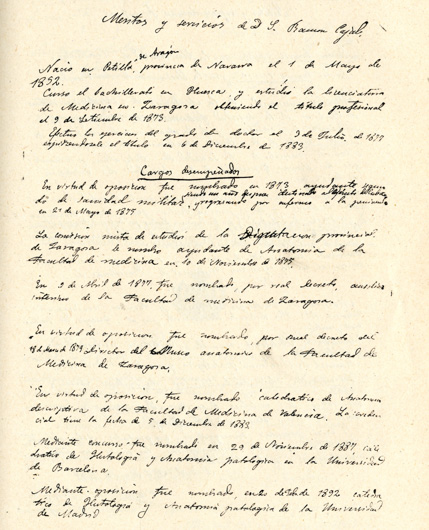 Meritos y servicios de D. S. Ramon Cajal.
de Aragon
Nacio en Petilla, provincia de Navarra el 1 de Mayo de
1852.
Curso el bachillerato en Huesca, y estudió la licenciatura
de Medicina en Zaragoza obteniendo el titulo profesional
el 9 de Setiembre de 1873.
Efectuo los ejercicios del grado de doctor el 3 de Julio, de 1877
expidiendosele el titulo en 6 de Diciembre de 1883.
Cargos desempeñados
En virtud de oposicion fue nombrado en 1873 ayudante segun
do de sanidad militar, por enfermo a la peninsula
en 21 de Mayo de 1875
La comision mixta de estudios de la Diputacion provincial
de Zaragoza le nombro ayudante de Anatomia de la
Facultad de medicina en 10 de Noviembre de 1875.
En 9 de Abril de 1877 fue nombrado, por real decreto, auxiliar
interino de la Facultad de medicina de Zaragoza.
En virtud de oposicion fue nombrado, por real decreto del
de 1879 Director del Museo anatomico de la Facultad de
Medicina de Zaragoza.
En virtud de oposicion, fue nombrado catedratico de Anatomia
descriptiva de la Facultad de Medicina de Valencia. La creden
cial tiene la fecha de 5 de Diciembre de 1883.
Mediante concurso fue nombrado en 29 de Noviembre de 1887, cate
dratico de Histologia y Anatomia patologica en la Universidad
de Barcelona.
Mediante oposicion fue nombrado, en 2 de 1892 catedra
tico de Histologia y Anatomia patologica de la Universidad
de Madrid